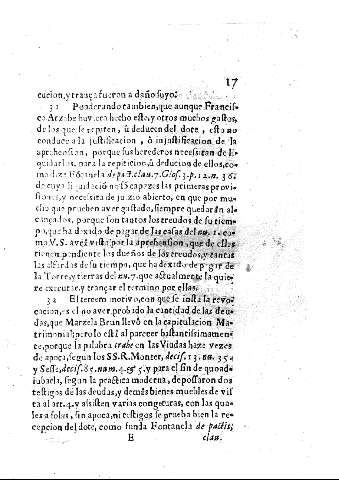 17
cucion, y trança fueron a daño suyo.
31 Ponderando tambien, que aunque Francis-
co Arzabe huviera hecho este, y otros muchos gastos,
de los que se repiten, ù deducen del dote, esto no
conduce a la justificacion, ò injustificacion de la
aprehension, porque sus herederos necessitan de li-
quidarlos, para la repiticiõ, ù deducion de ellos, co-
ma dize Fõtanela de pact. clau. 7. Glos. 3. p. 12. n. 36.
de cuya liquidaciõ no sõ capazes las primeras provi-
siones, y necessita de juizio abierto, en que por mu-
cho que prueben aver gastado, siempre quedarán al-
cançados, porque son tantos los treudos de su tiem-
po, que ha dexido de pagar de las casas del nu. 1. co-
mo V.S. avrà vista por la aprehension, que de ellas
tienen pendiente los dueños de los treudos, y tantas
las alfardas de su tiempo, que ha dexado de pagar de
la Torre, y tierras del nu. 7. que actualmente la quie-
re executar, y trançar el termino por ellas.
32 El tercero motivo, con que se insta la revo-
cacion, es el no aver probado la cantidad de las deu-
das, que Marzela Brun llevò en la capitulacion Ma-
trimonial; pero està al parecer bastantissimamen-
te, porque la palabra trahe en las Viudas haze vezes
de apoca, segun los SS.R. Monter, decis. 13. nu. 35.
y Sesse, decis. 85. num. 4. & 5. y para el fin de quoad-
iubarla, segun la practica moderna, depossaron dos
testigos de las deudas, y demàs bienes muebles de vis-
ta al art. 4. y assisten varias congeturas, con las qua-
les a solas, sin apoca, ni testigos se prueba bien la re-
cepcion del dote, como funda Fontanela de pactis;
E clau.